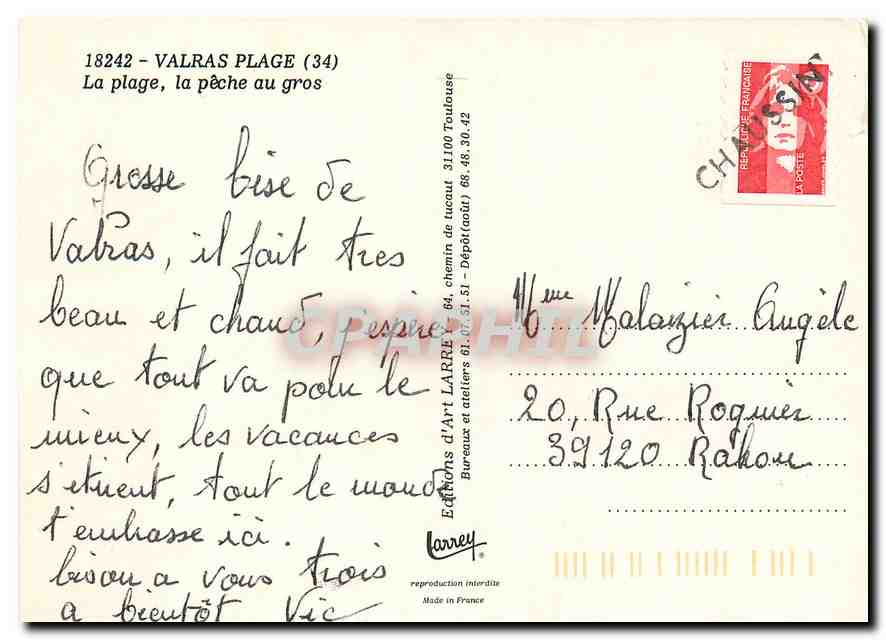 18242 - VALRAS PLAGE (34)
La plage, la pêche au gros
Grosse bise de
Valras, il fait tres
beau et chaud, j'espère
que tout va pour le
mieux, les vacances
s'etirent, tout le monde
t'embrasse ici.
bisou a vous trois
a bientôt Vic
Editions d'Art LARREY - 64, chemin de tucaut 31100 Toulouse
Bureaux et ateliers 61.07.51.51 - Dépôt(août) 68.48.30.42
Larrey
reproduction interdite
Made in France
REPUBLIQUE FRANÇAISE
LA POSTE
CHAUSSIN
CPAPHIL
Mme Malaizier Angèle
20, Rue Roquier
39120 Rahon